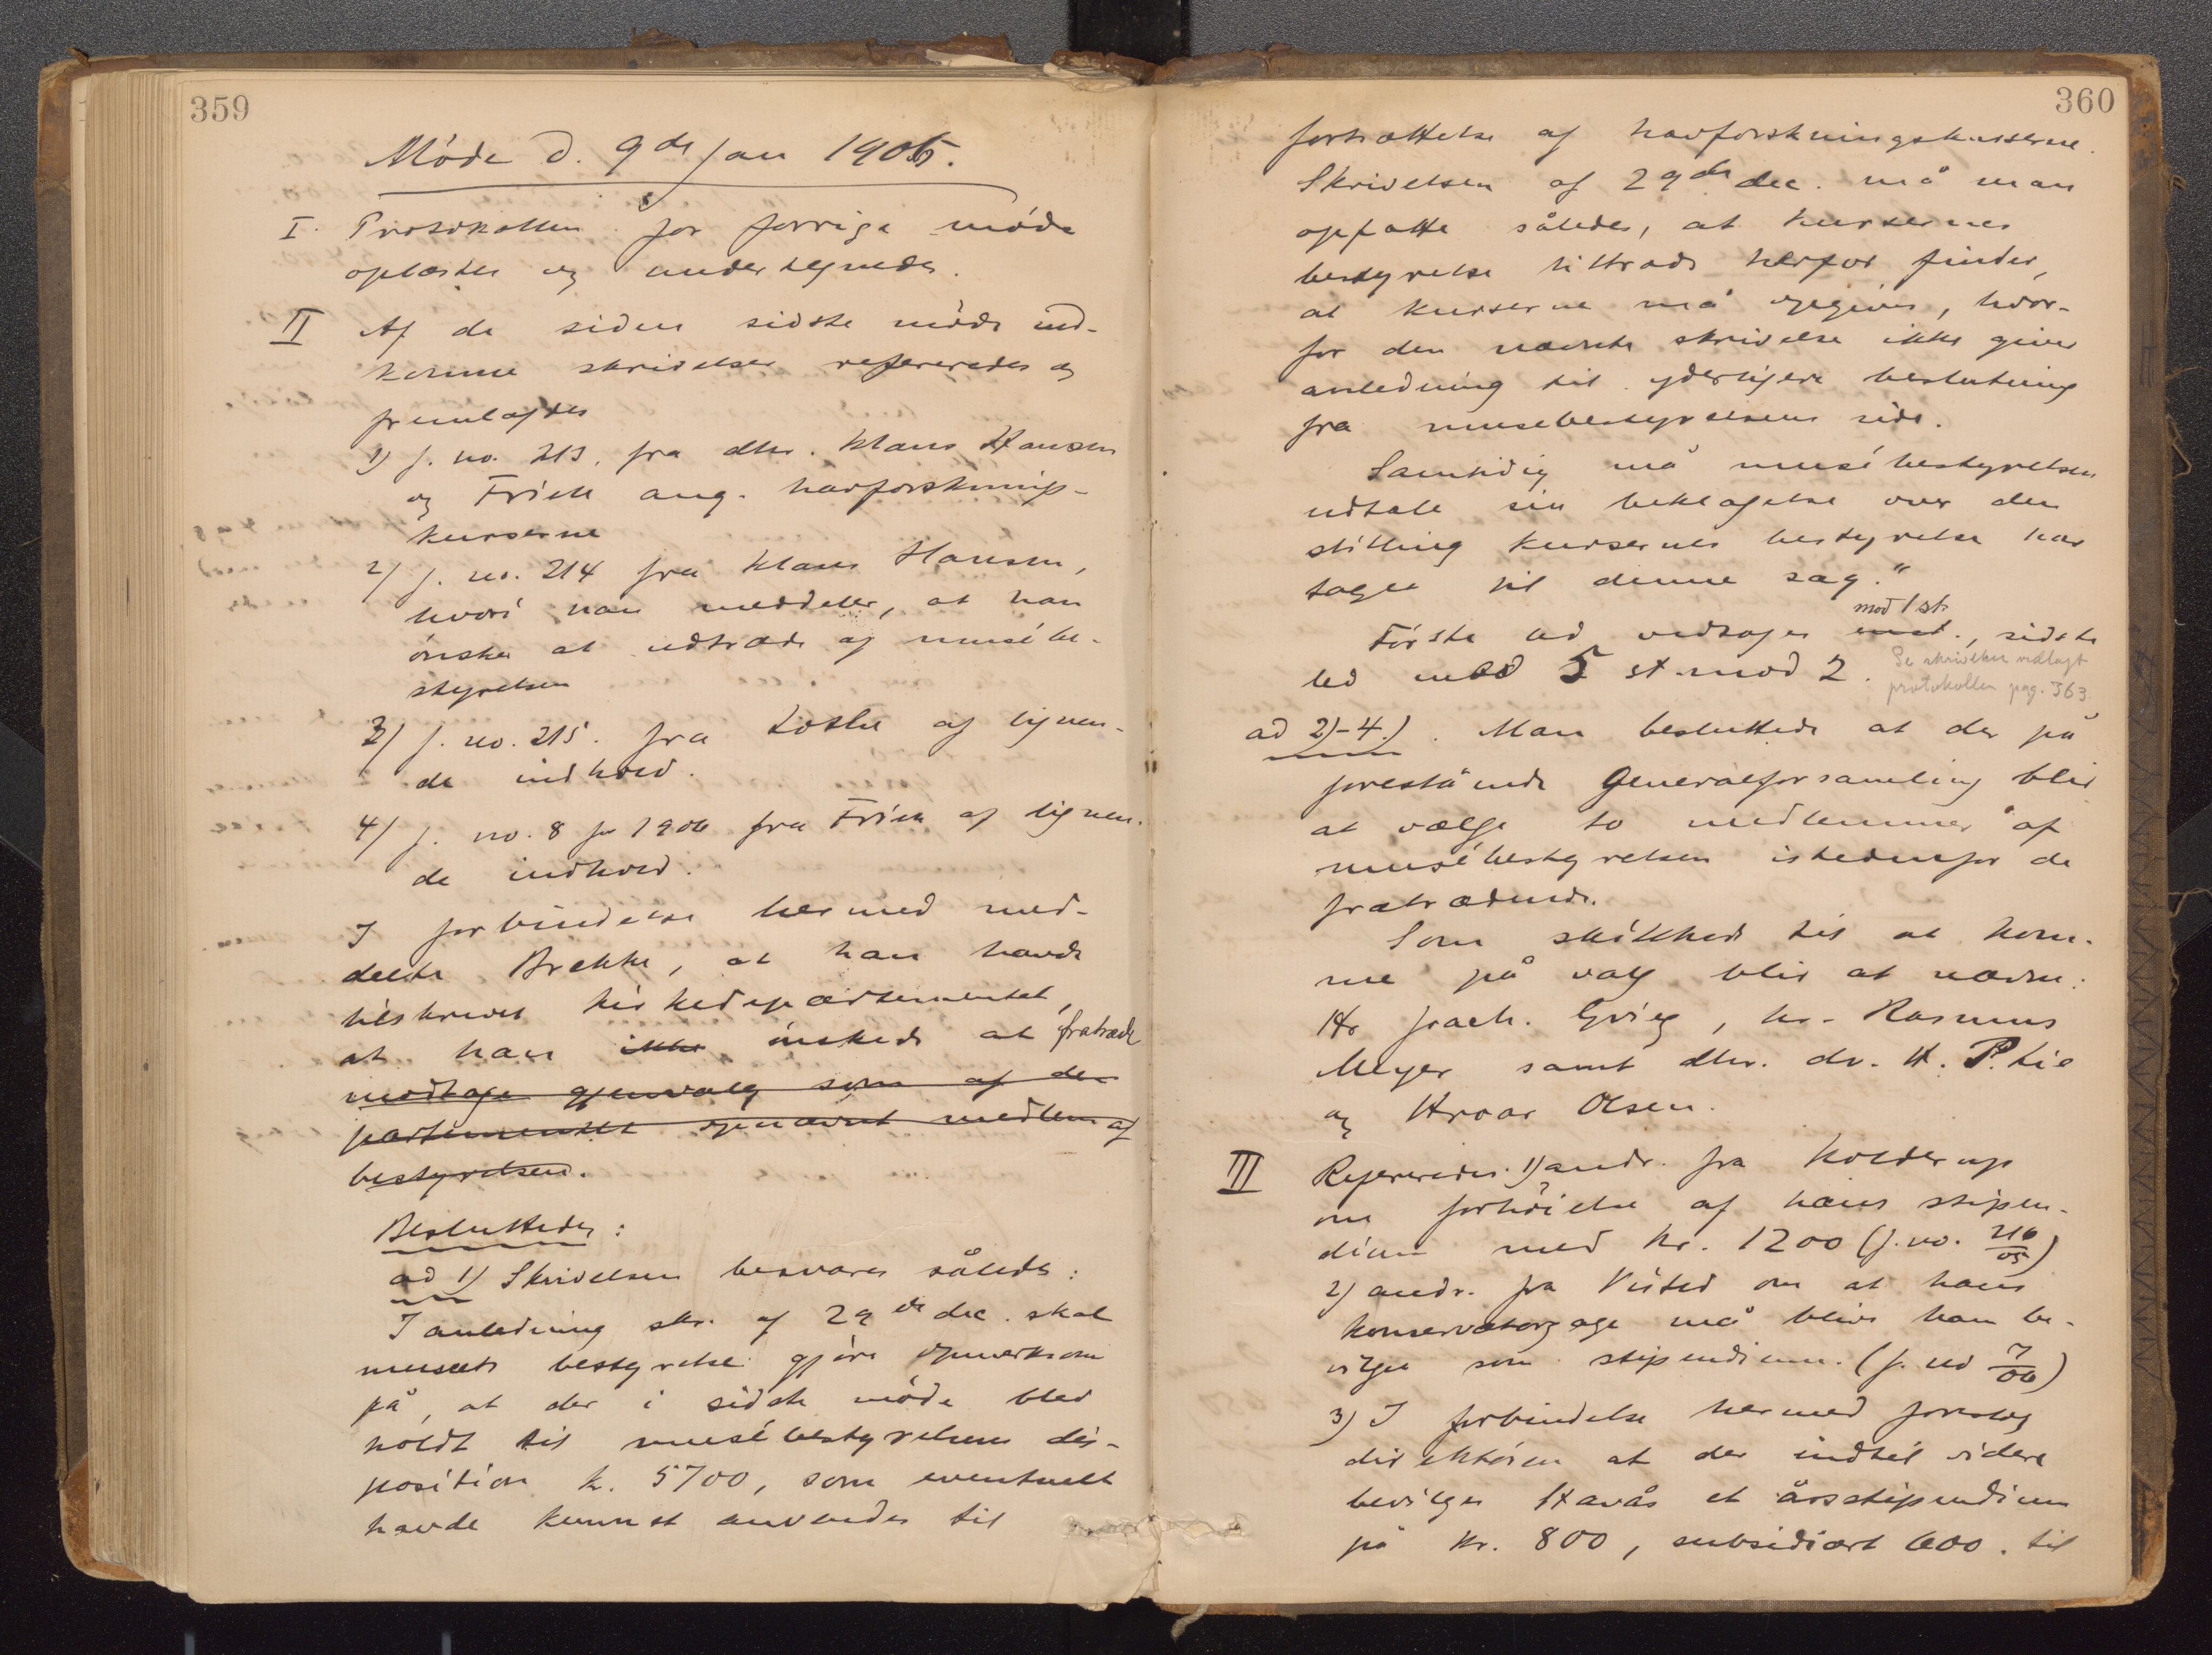 359
Møde d. 9de Jan 1906.
I. Protokollen for forrige møde
oplæstes og undertegnedes.
II Af de siden sidste møde ind-
komne skrivelser refereredes og
fremlagdes
1) J. no. 213. fra dhr. Klaus Hansen
og Friele ang. havforsknings-
kurserne
2) J. no. 214 fra Klaus Hansen,
hvori han meddeler, at han
ønsker at udtræde af musébe-
styrelsen
3) J. no. 215. fra Lothe af lignen-
de indhold.
4) J. no. 8 for 1906 fra Friele af lignen-
de indhold.
I forbindelse hermed med-
delte Brekke, at han havde
tilskrevet kirkedepartementet,
at han ikke ønskede at fratræde
modtage gjenvalg som af de
partementet opnævnt medlem af
bestyrelsen.
Besluttedes:
ad 1) Skrivelsen besvares således:
I anledning skr. af 29de dec. skal
museets bestyrelse gjøre opmerksom
på, at der i sidste møde blev
holdt til musébestyrelsens dis-
position k. 5700, som eventuelt
havde kunnet anvendes til
360
fortsættelse af havforskningskurserne.
Skrivelsen af 29de dec. må man
opfatte således, at kursernes
bestyrelse tiltrods herfor finder,
at kurserne må opgives, hvor-
for den nævnte skrivelse ikke giver
anledning til yderligere beslutning
fra musebestyrelsens side.
Samtidig må musébestyrelsen
udtale sin beklagelse over den
stilling kursernes bestyrelse har
taget til denne sag."
mod 1 st.
Første led vedtoges enst., sidste
led med 5 st. mod 2.
Se skrivelse vedlagt
protokollen pag. 363.
ad 2)-4.). Man besluttede at der på
forestående Generalforsamling blir
at vælge to medlemmer af
musébestyrelsen istedenfor de
fratrædende.
Som skikkede til at kom-
me på valg blir at nævne:
Hr Joach. Grieg, hr. Rasmus
Meyer samt dhr. dr. H. P. Lie
og Hroar Olsen.
III Refereredes 1) andr. fra Kolderup
om forhøielse af hans stipen-
dium med kr. 1200 (J. no. 216/05)
2) andr. fra Visted om at hans
konservatorgage må blive ham be-
vilget som stipendium. (J. no 7/06)
3) I forbindelse hermed foreslog
direktøren at der indtil videre
bevilges Havås et årsstipendium
på kr. 800, subsidiært 600. til